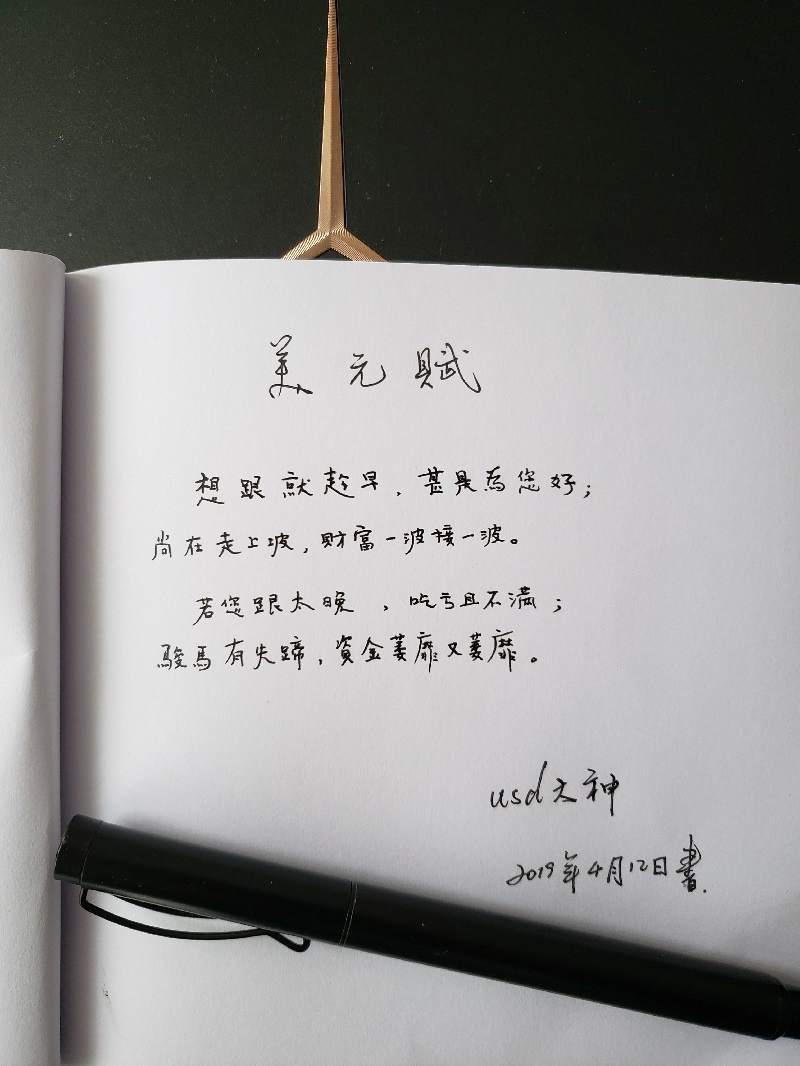 美元賦
想跟就趁早，甚是為您好；
尚在走上坡，財富一波接一波。
若您跟太晚，吃亏且不滿；
駿馬有失蹄，資金萎靡又萎靡。
usd大神
2019年4月12日書.